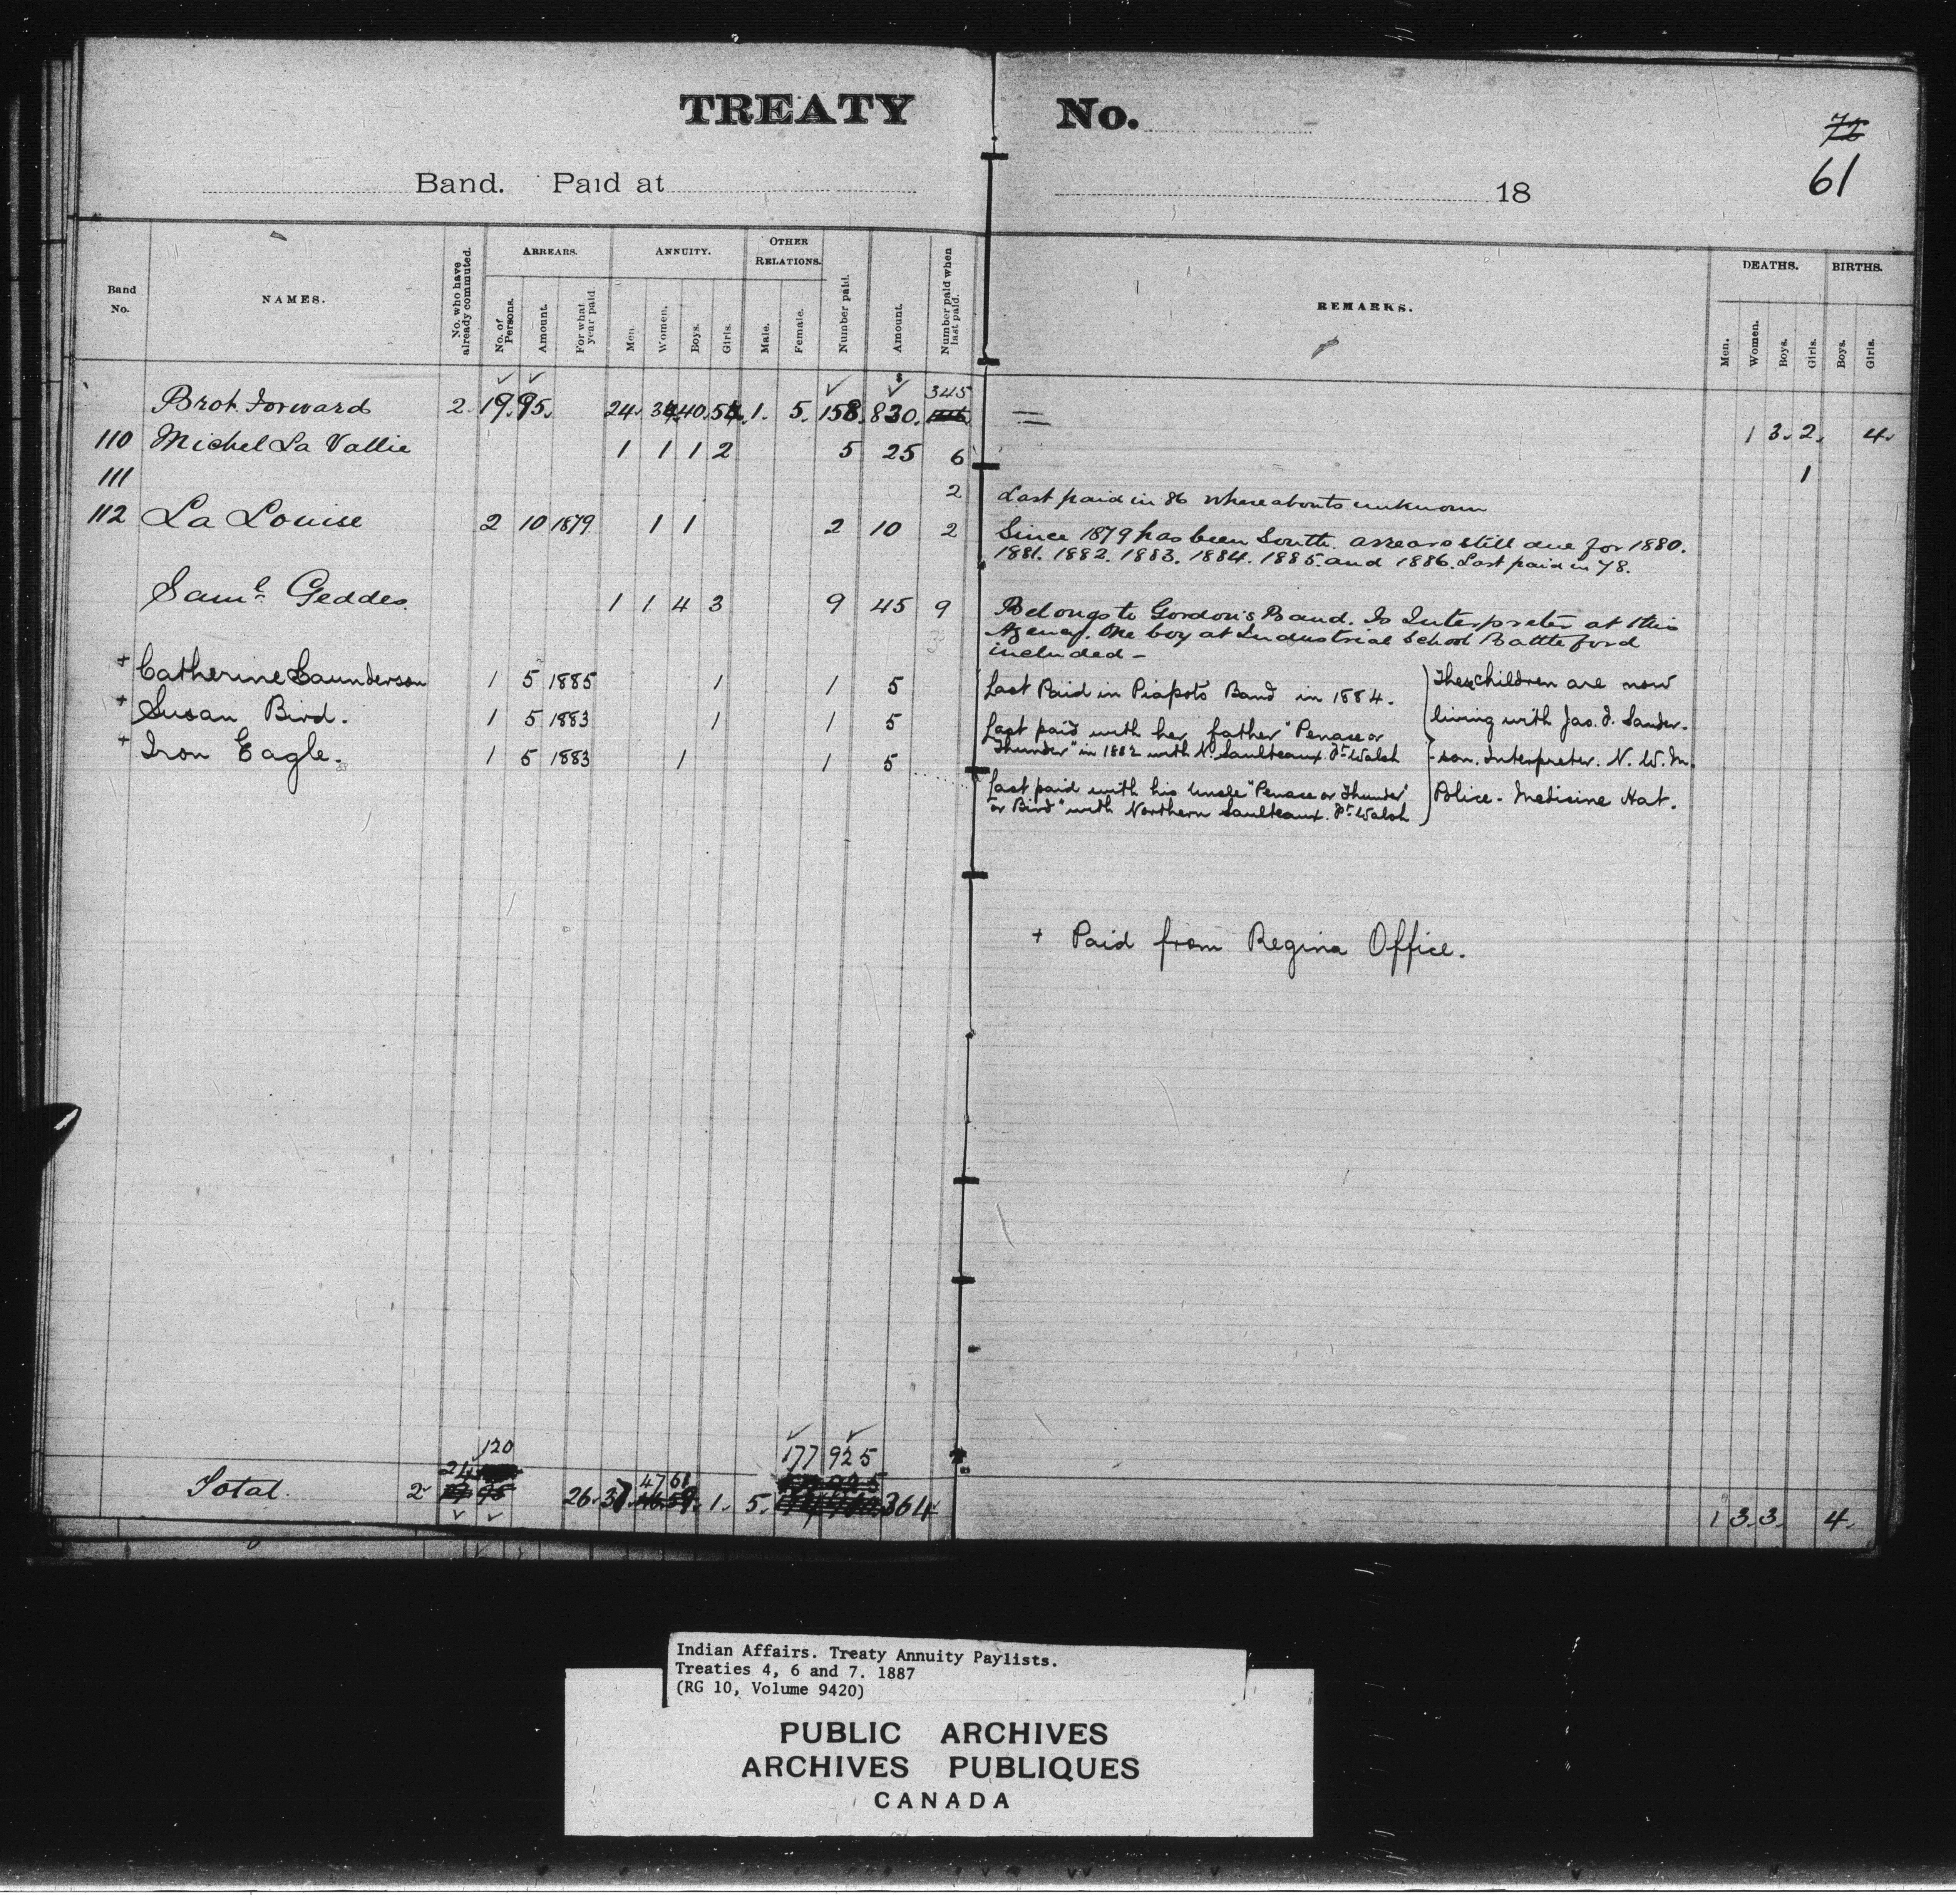 TREATY No.
72
61
Band. Paid at 18
Band No.
NAMES.
No. who have already commuted.
ARREARS.
No. of Persons.
Amount.
For what year paid
ANNUITY.
Men.
Women.
Boys.
Girls.
OTHER RELATIONS.
Male.
Female.
Number paid.
Amount.
Number paid when last paid.
REMARKS.
DEATHS.
Men.
Women.
Boys.
Girls.
BIRTHS.
Boys.
Girls.
345
Brot. Forward 2. 19. 95. 24. 40. 1. 5. 158. 830. 1 3. 2. 4.
110 Michel La Vallie 1 1 1 2 5 25 6 1
111 2 Last paid in 86 whereabouts unknown
112 La Louise 2 10 1879 1 1 2 10 2 Since 1879 has been South. arrears still due for 1880.
1881. 1882. 1883. 1884. 1885. and 1886. Last paid in 78.
Saml. Geddes. 1 1 4 3 9 45 9 Belongs to Gordon's Band. Is Interpreter at this
Agency. One boy at Industrial School Battleford
3 included -
+ Catherine Saunderson 1 5 1885 1 1 5 Last Paid in Piapots Band in 1884.
+ Susan Bird. 1 5 1883 1 1 5 Last paid with her father "Penase or
Thunder" in 1882 with N. Saulteaux. Ft. Walsh
+ Iron Eagle. 1 5 1883 1 1 5
Last paid with his Uncle "Penase or Thunder"
or Bird" with Northern Saulteaux. Ft. Walsh
These children are now
living with Jas. F. Sander-
-son. Interpreter. N. W. M.
Police. Medicine Hat.
+ Paid from Regina Office.
120 177 925
24
47 61
Total. 2 26. 37 1. 5. 364 1 3. 3. 4.
Indian Affairs. Treaty Annuity Paylists.
Treaties 4, 6 and 7. 1887
(RG 10, Volume 9420)
PUBLIC ARCHIVES
ARCHIVES PUBLIQUES
CANADA